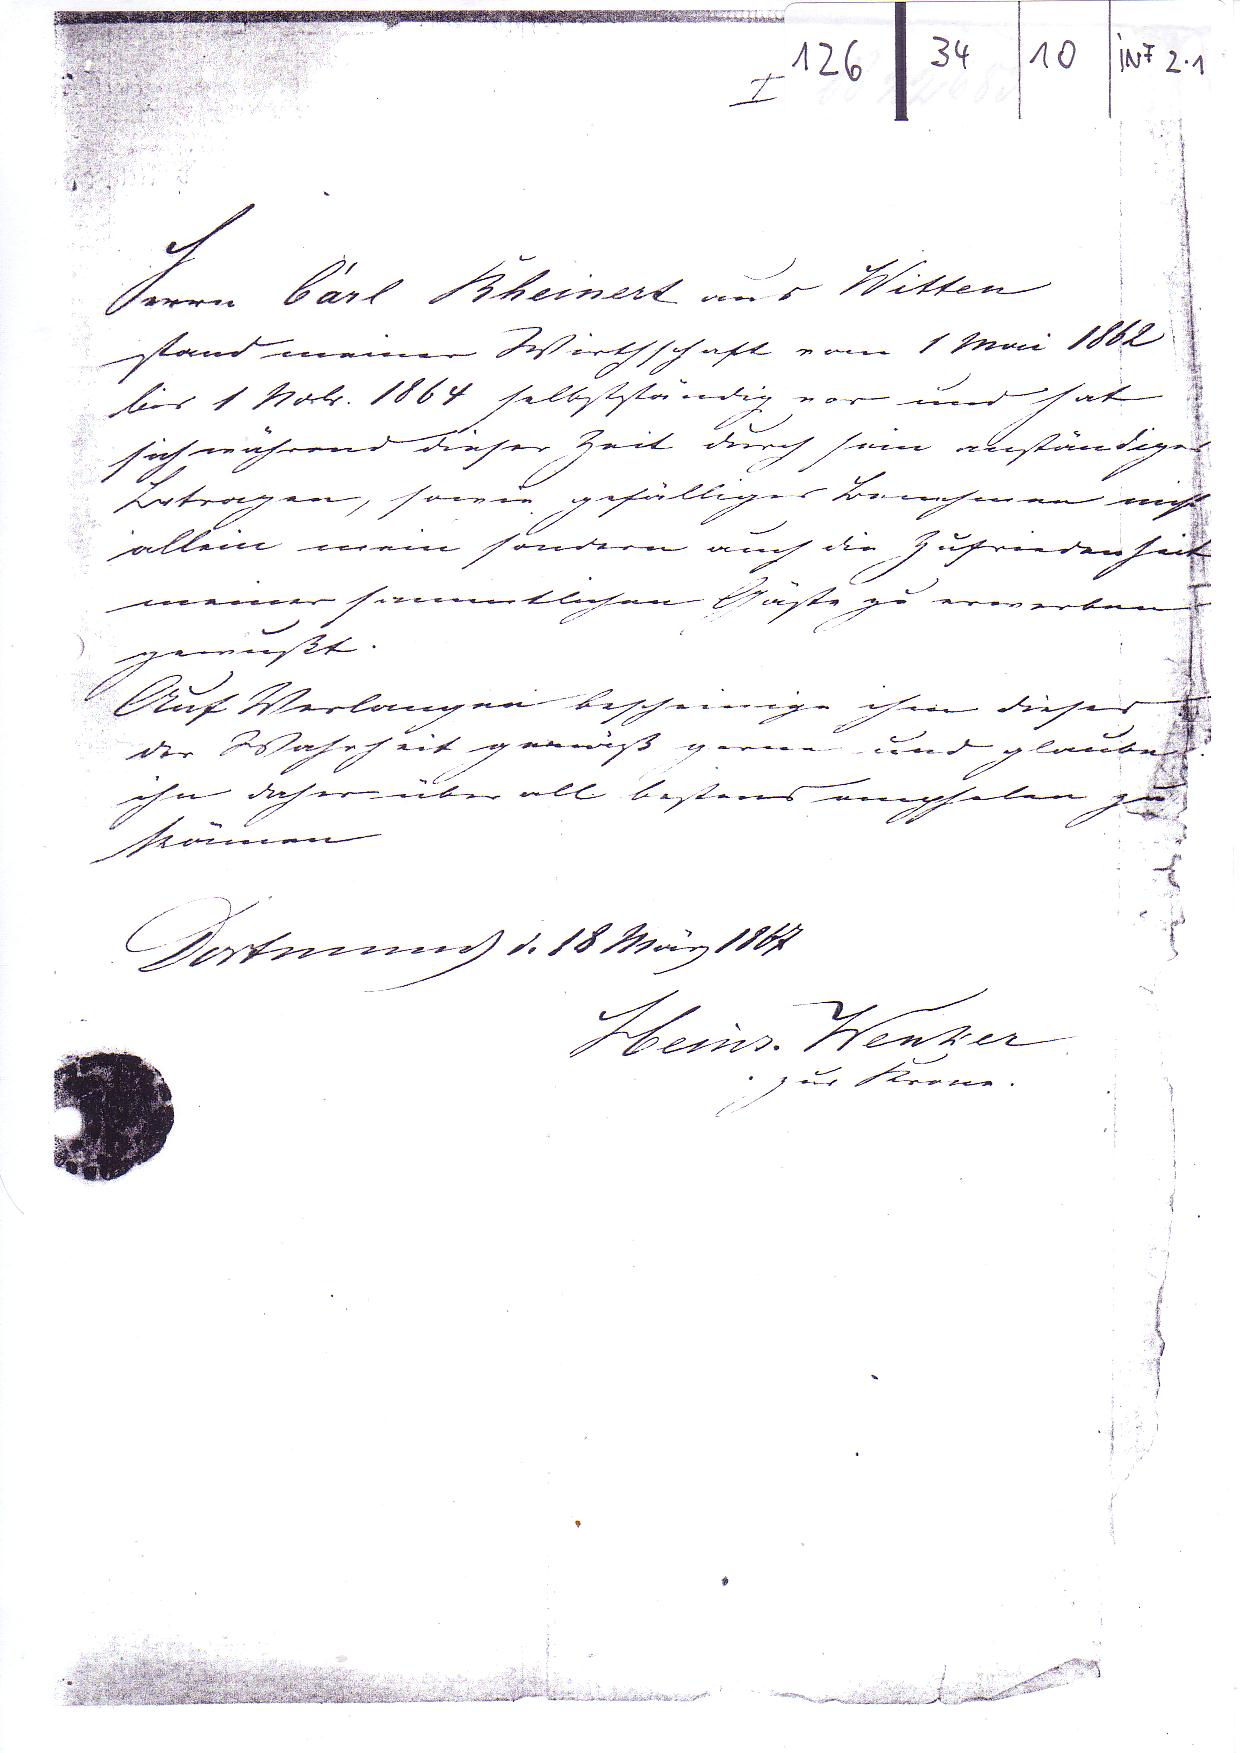 126 34 10 INF 2.1
I
Herrn Carl Rheinert aus Witten
stand meiner Wirthschaft vom 1 Mai 1862
bis 1 Novbr. 1864 selbstständig vor und hat
sich während dieser Zeit durch sein anständiges
Betragen, sowie gefälliges Benehmen nicht
allein mein sondern auch die Zufriedenheit
meiner sammtlichen Gäste zu erwerben
gewußt.
Auf Verlangen bescheinige ihm dieses
der Wahrheit gemäß gerne und glaube
ihn daher überall bestens empfelen zu
können
Dortmund d. 18 März 1867
Heinr. Wenker
zur Krone.